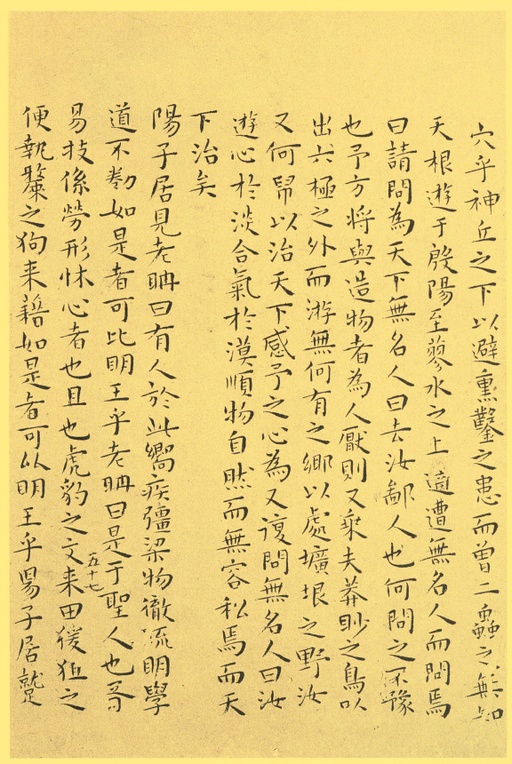 穴乎神丘之下以避熏鑿之患而曾二蟲之無知
天根遊于殷陽至蓼水之上適遭無名人而問焉
曰請問為天下無名人曰去汝鄙人也何問之不豫
也予方將與造物者為人厭則又乘夫莽眇之鳥以
出六極之外而游無何有之鄉以處壙垠之野汝
又何帠以治天下感予之心為又復問無名人曰汝
遊心於淡合氣於漠順物自然而無容私焉而天
下治矣
陽子居見老聃曰有人於此嚮疾彊梁物徹疏明學
道不勌如是者可比明王乎老聃曰是于聖人也胥
易技係勞形怵心者也且也虎豹之文来田猨狙之
五十七
便執斄之狗来藉如是者可以明王乎陽子居蹴